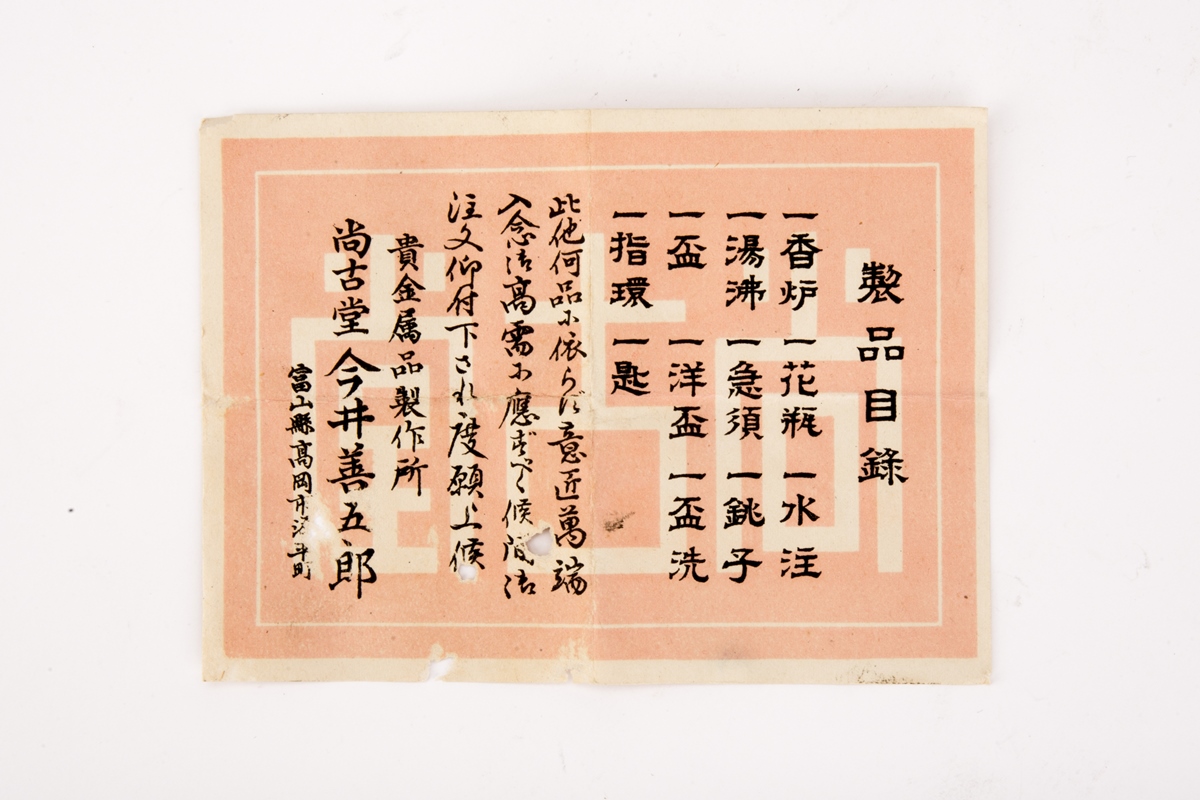 製品目錄
一香炉 一花瓶 一水注
一湯沸 一急須 一銚子
一盃 一洋盃 一盃洗
一指環 一匙
此他何品に依らず意匠萬端
入念御高需に應ずべく候間御
注文仰付下され度願上候
貴金属品製作所
尚古堂 今井善五郎
富山縣高岡市 町
尚古堂